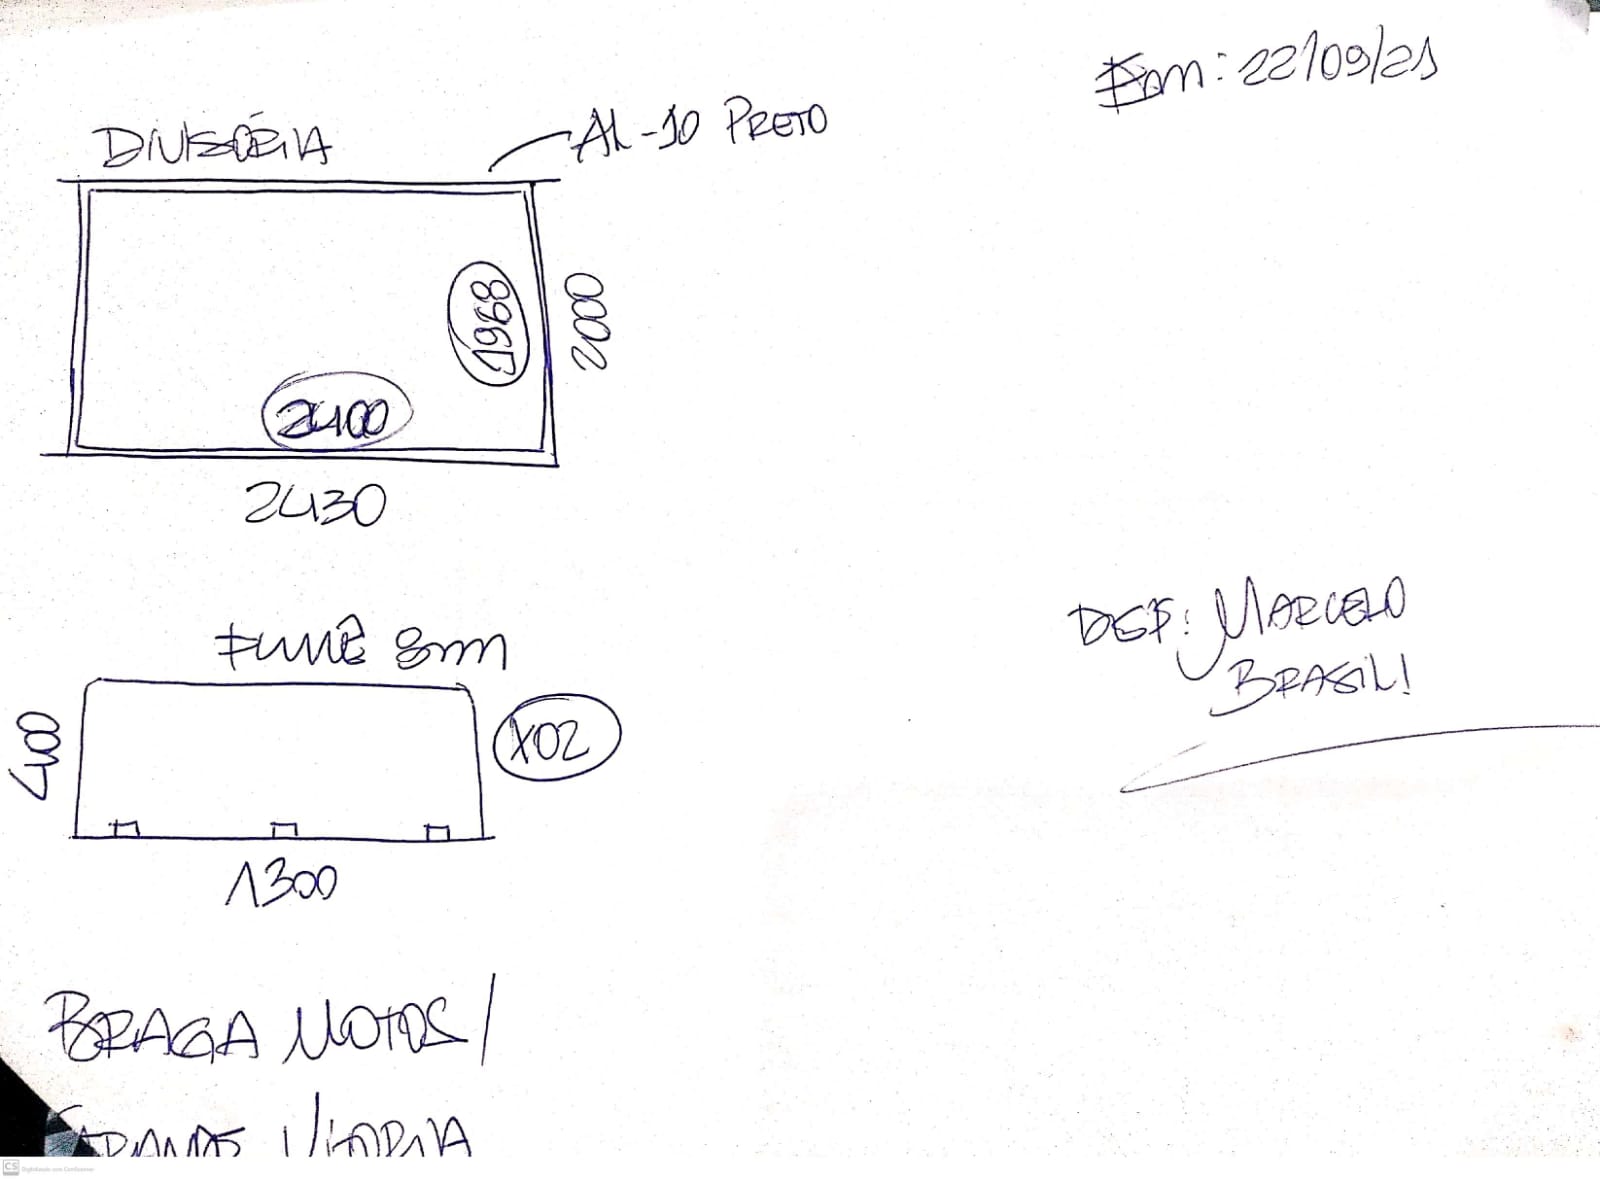 Em: 22/09/21
DIVISÓRIA
AL-10 PRETO
1968
2000
2400
2430
FUMÊ 8mm
400
X02
1300
DESP: MARCELO
BRASIL!
BRAGA MOTOS/
VITÓRIA
CS Digitalizado com CamScanner